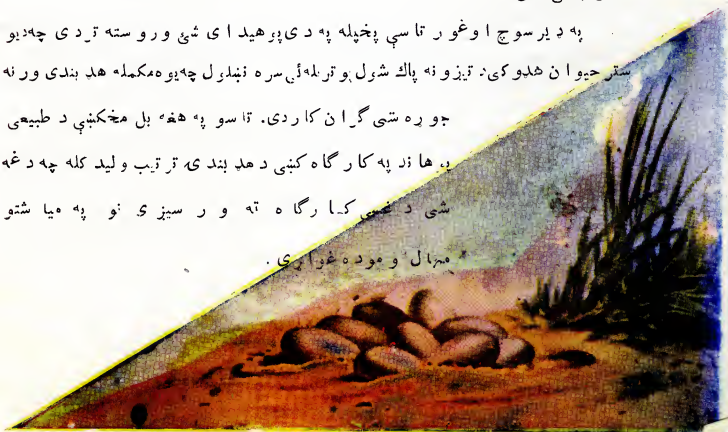 په ډیر سوچ اوغور تاسې پخپله په دې پوهیدای شئ وروسته تردې چه دیو
ستر حیوان هدوکې تیزونه پاك شول وترلهئې سره نښلول چه یوه مکمله هد بندی ورنه
جوړه شی گران کار دی. تاسو په هغه بل مخکښې د طبیعی
په کارگاه کښې دهد بندۍ ترتیب ولید کله چه دغه
شی د کارگاه ته ورسیزی نو په میاشتو
مهال وموده غواړی.